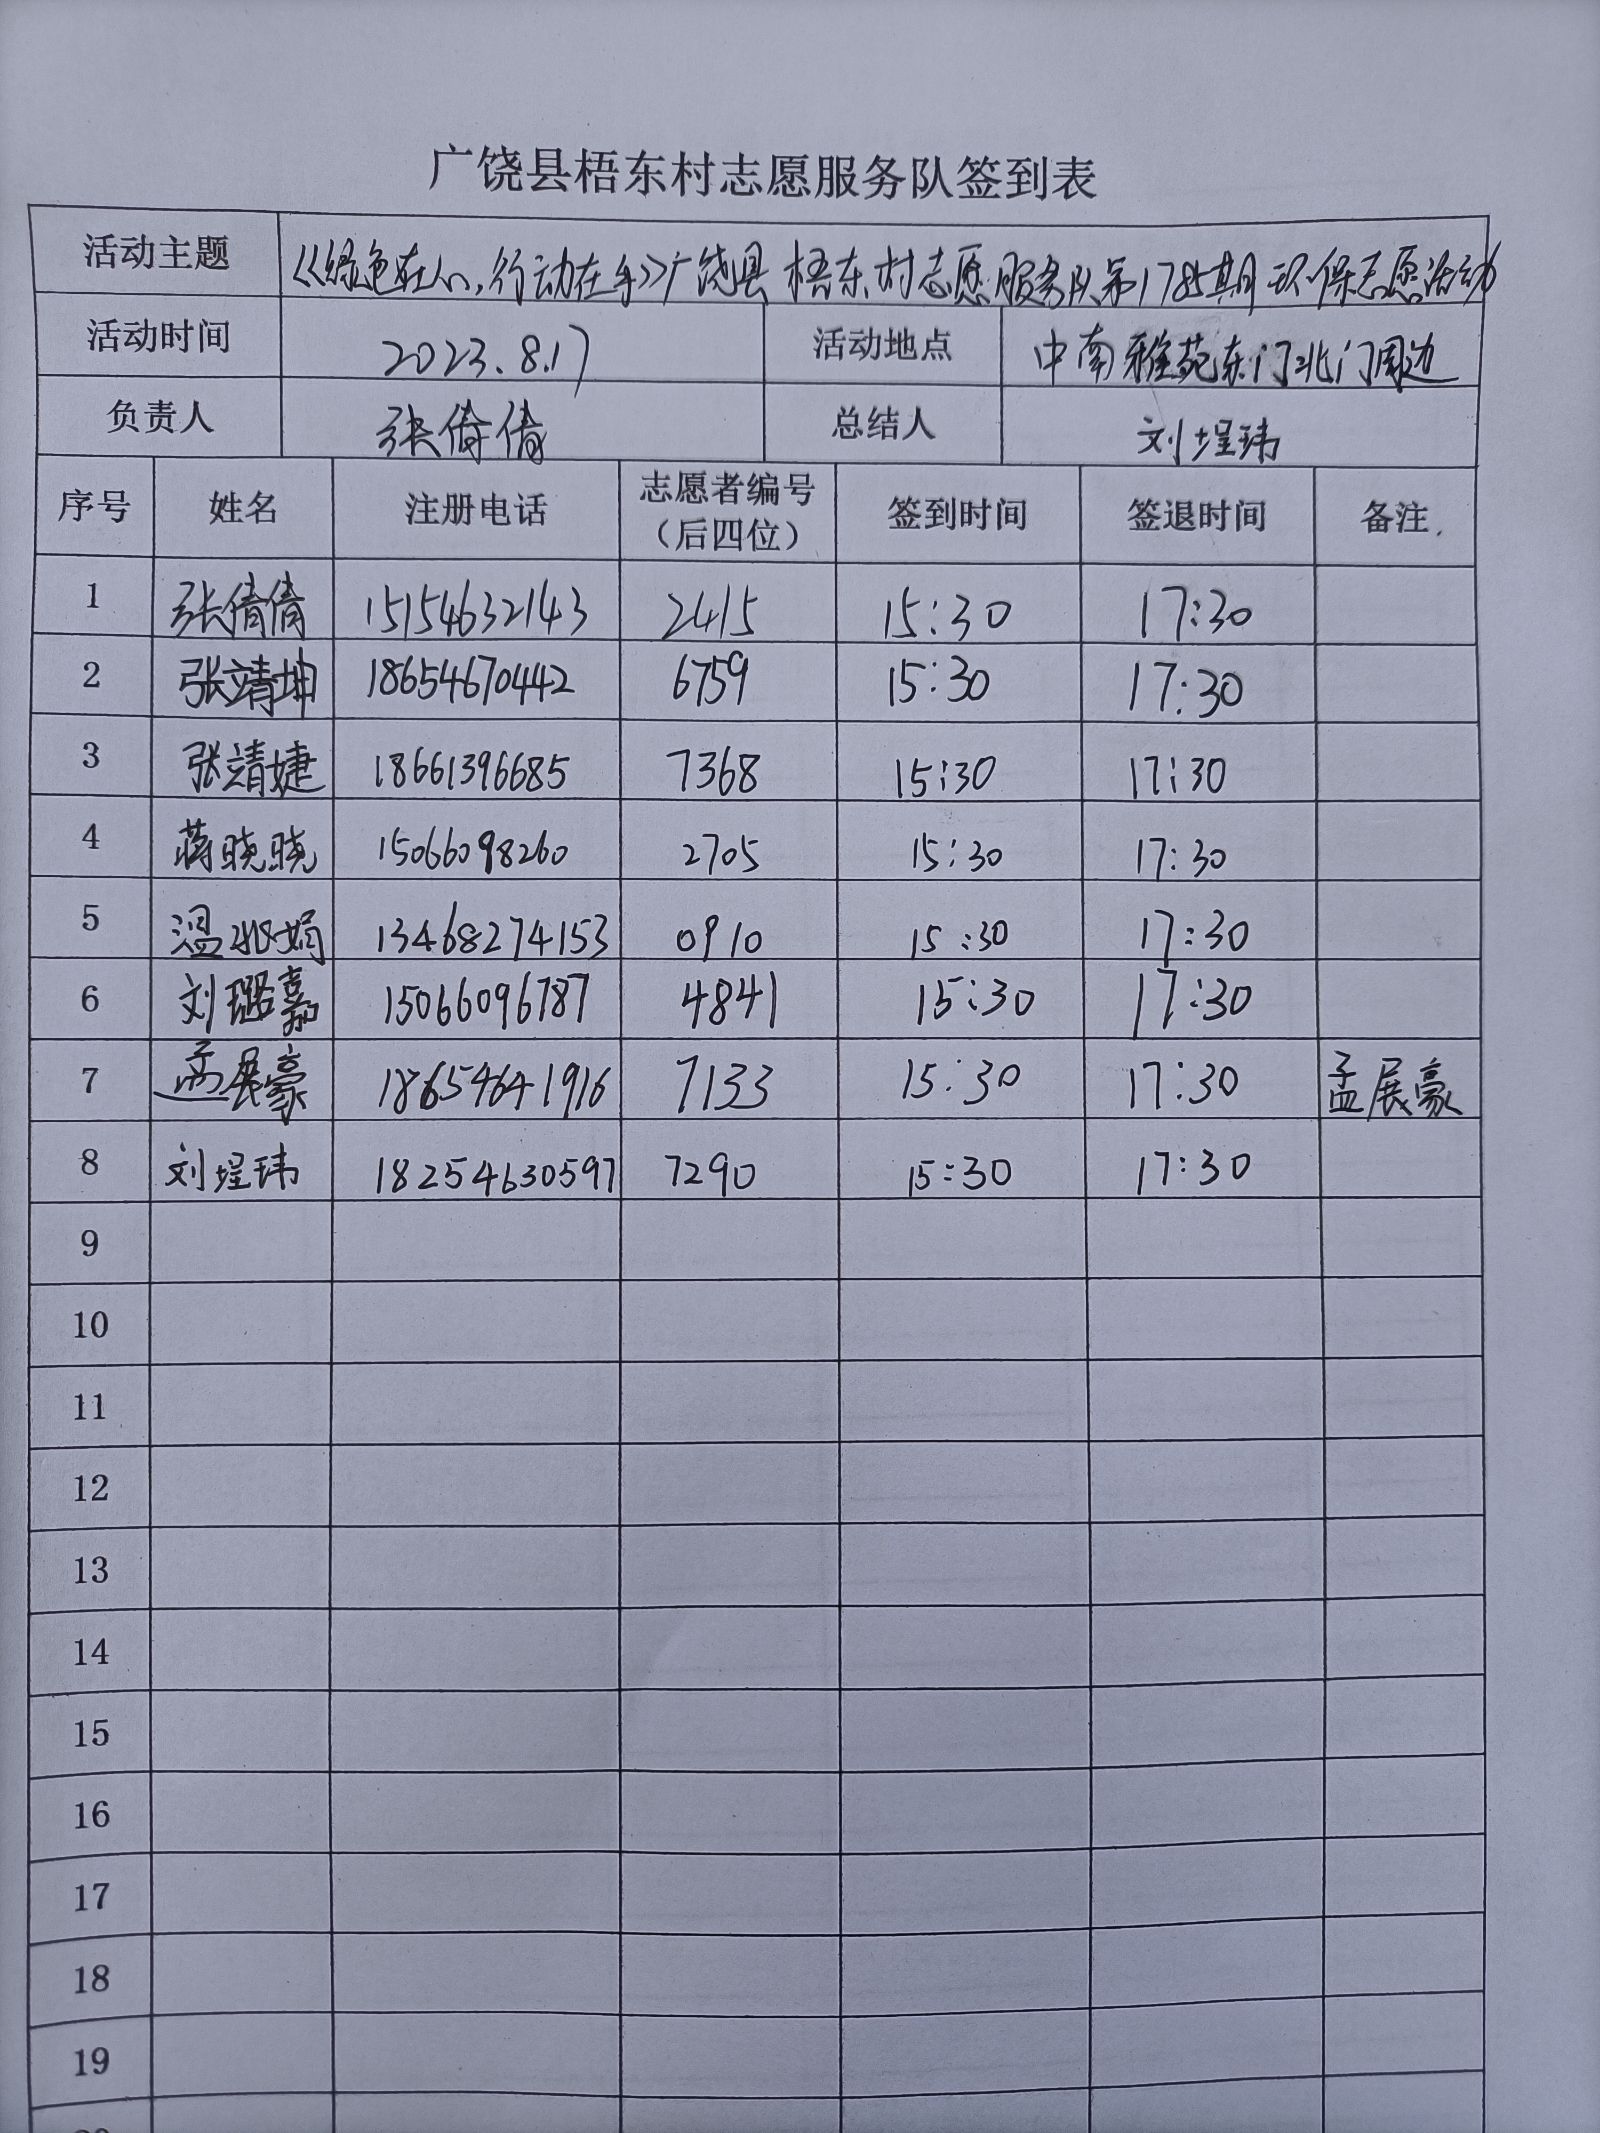 广饶县梧东村志愿服务队签到表
活动主题 《绿色在心，行动在手》广饶县梧东村志愿服务队第1785期环保志愿活动
活动时间 2023.8.17 活动地点 中南雅苑东门北门周边
负责人 张倩倩 总结人 刘埕玮
序号 姓名 注册电话 志愿者编号 签到时间 签退时间 备注
（后四位）
1 张倩倩 15154632143 2415 15:30 17:30
2 张靖坤 18654670442 6759 15:30 17:30
3 张靖婕 18661396685 7368 15:30 17:30
4 蒋晓晓 15066098260 2705 15:30 17:30
5 温兆娟 13468274153 0910 15:30 17:30
6 刘璐嘉 15066096787 4841 15:30 17:30
7 孟展豪 18654641916 7133 15:30 17:30 孟展豪
8 刘埕玮 18254630597 7290 15:30 17:30
9
10
11
12
13
14
15
16
17
18
19